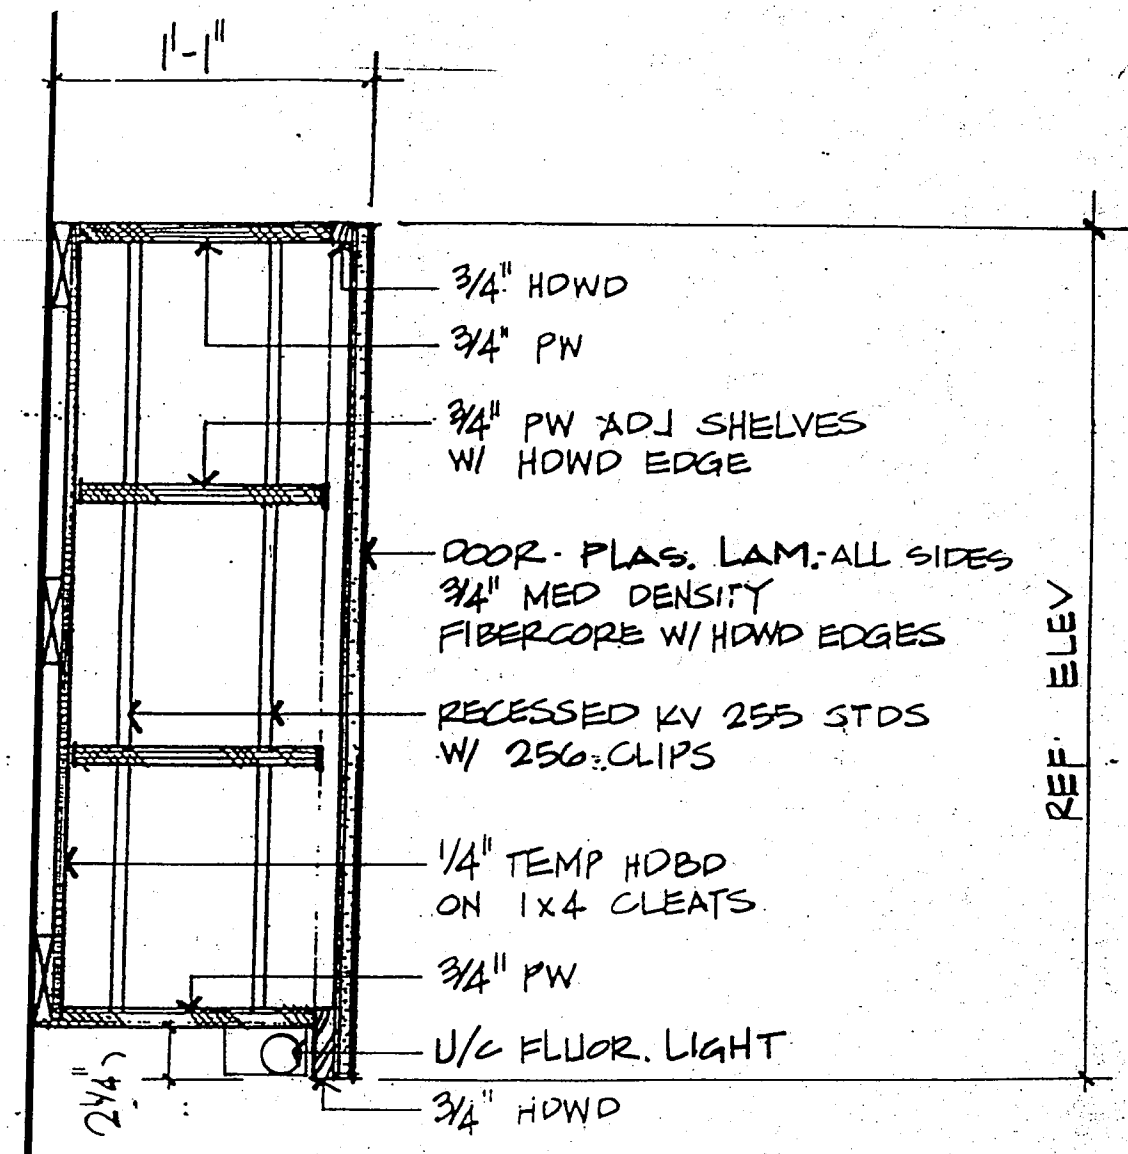 1'-1"
3/4" HDWD
3/4" PW
3/4" PW ADJ SHELVES
W/ HDWD EDGE
DOOR - PLAS. LAM.-ALL SIDES
3/4" MED DENSITY
FIBERCORE W/ HDWD EDGES
REF ELEV
RECESSED KV 255 STDS
W/ 256 CLIPS
1/4" TEMP HDBD
ON 1x4 CLEATS
3/4" PW
U/C FLUOR. LIGHT
2 1/4"
3/4" HDWD